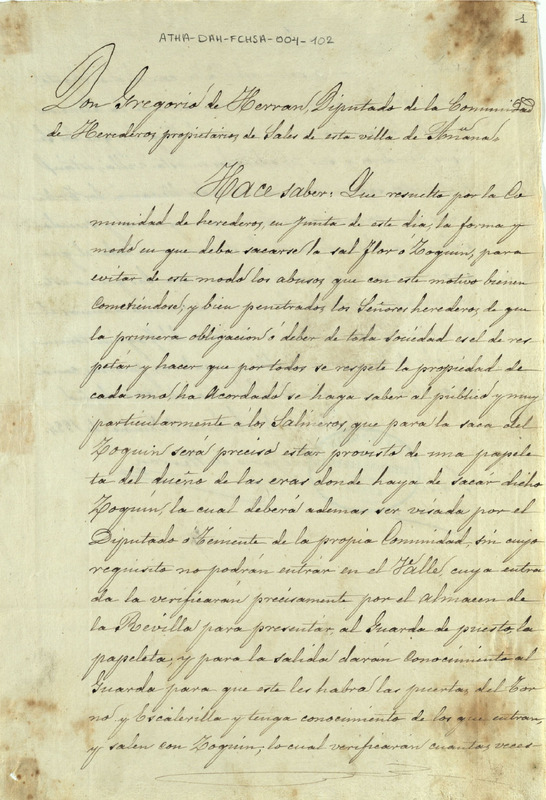 1
ATHA-DAH-FCHSA-004-102
Don Gregorio de Herran, Diputado de la Comunidad
de Herederos propietarios de Sales de esta villa de Añana
Hace saber: Que resuelto por la Co
munidad de herederos, en Junta de este dia, la forma y
modo en que deba sacarse la sal flor o Zoquin, para
evitar de este modo los abusos que con este motivo bienen
cometiendose, y bien penetrados los Señores herederos de que
la primera obligacion ó deber de toda sociedad es el de res
petár y hacer que por todos se respete la propiedad de
cada uno, ha Acordado se haga saber al público y muy
particularmente á los Salineros, que para la saca del
Zoquin será preciso estár provisto de una papele
ta del dueño de las eras donde haya de sacár dicho
Zoquin, la cual deberá ademas ser visada por el
Diputado o Teniente de la propia Comunidad, sin cuyo
requisito no podrán entrár en el Valle, cuya entra
da la verificarán precisamente por el almacen de
la Revilla para presentar al Guarda de puesto, la
papeleta, y para la salida darán conocimiento al
Guarda para que este les habra las puertas del Tor
no y Escalerilla y tenga conocimiento de los que entran,
y salen con Zoquin, lo cual verificaran cuantas veces